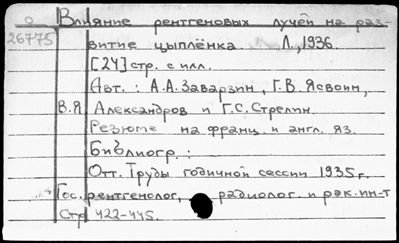 О Влияние рентгеновых лучей на раз-
26775 витие цыплёнка. Л., 1936.
[24] стр. с илл.
Авт.: А.А. Заварзин, Г.В. Ясвоин,
В.Я. Александров и Г.С. Стрелин.
Резюме на франц. и англ. яз.
Библиогр.:
Отт. Труды годичной сессии 1935 г.
Гос. рентгенолог., радиолог. и рак. ин-т
Стр 422-445.